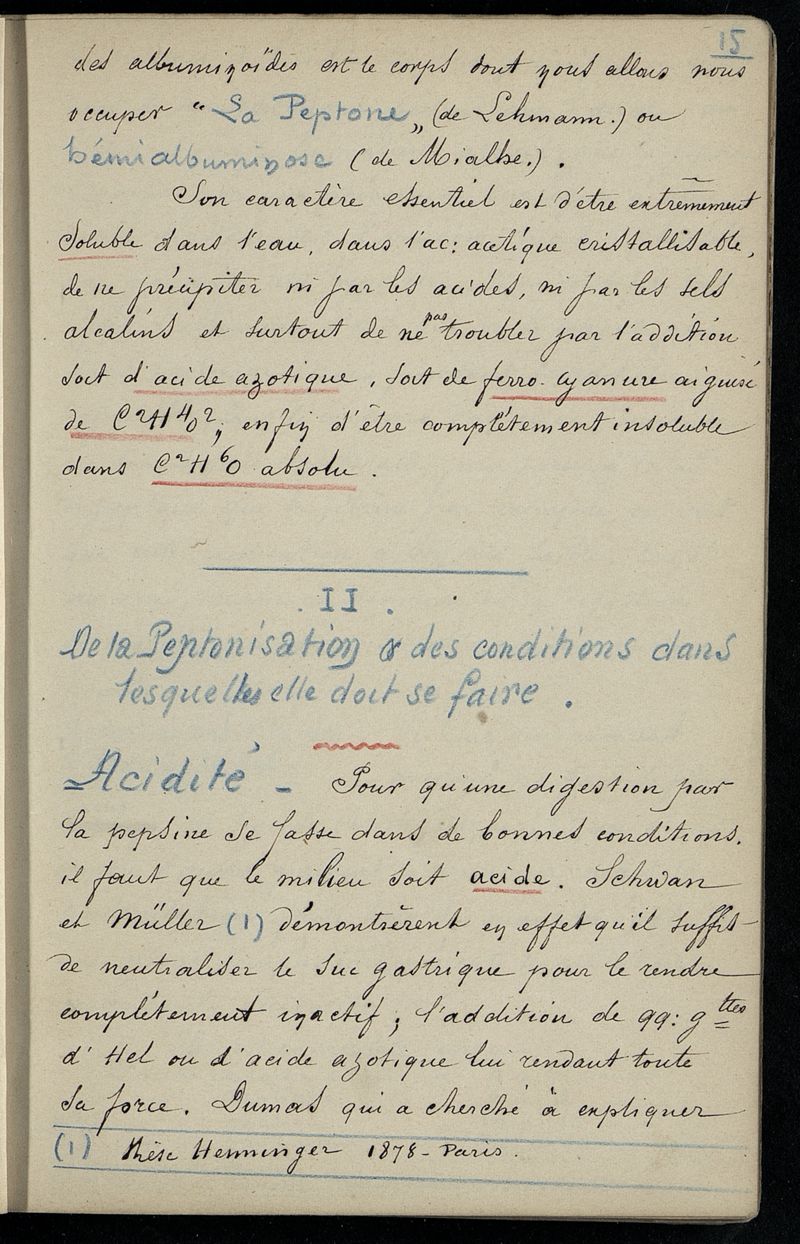 15
des albuminoïdes est le corps dont nous allons nous
occuper "La Peptone" (de Lehmann.) ou
hémialbuminose (de Mialhe.).
Son caractère essentiel est d'être extrêmement
soluble dans l'eau, dans l'ac: acétique cristallisable,
de ne précipiter ni par les acides, ni par les sels
alcalins et surtout de ne pas troubler par l'addition
soit d'acide azotique, soit de ferro-cyanure aiguisé
de C²H⁴O², enfin d'être complètement insoluble
dans C²H⁶O absolu.
II.
De la Peptonisation & des conditions dans
lesquelles elle doit se faire.
Acidité - Pour qu'une digestion par
la pepsine se fasse dans de bonnes conditions.
il faut que le milieu soit acide. Schwan
et Müller (1) démontrèrent en effet qu'il suffit
de neutraliser le suc gastrique pour le rendre
complètement inactif; l'addition de qq: gttes
d'Hcl ou d'acide azotique lui rendant toute
sa force. Dumas qui a cherché à expliquer
(1) thèse Henninger 1878 - Paris.